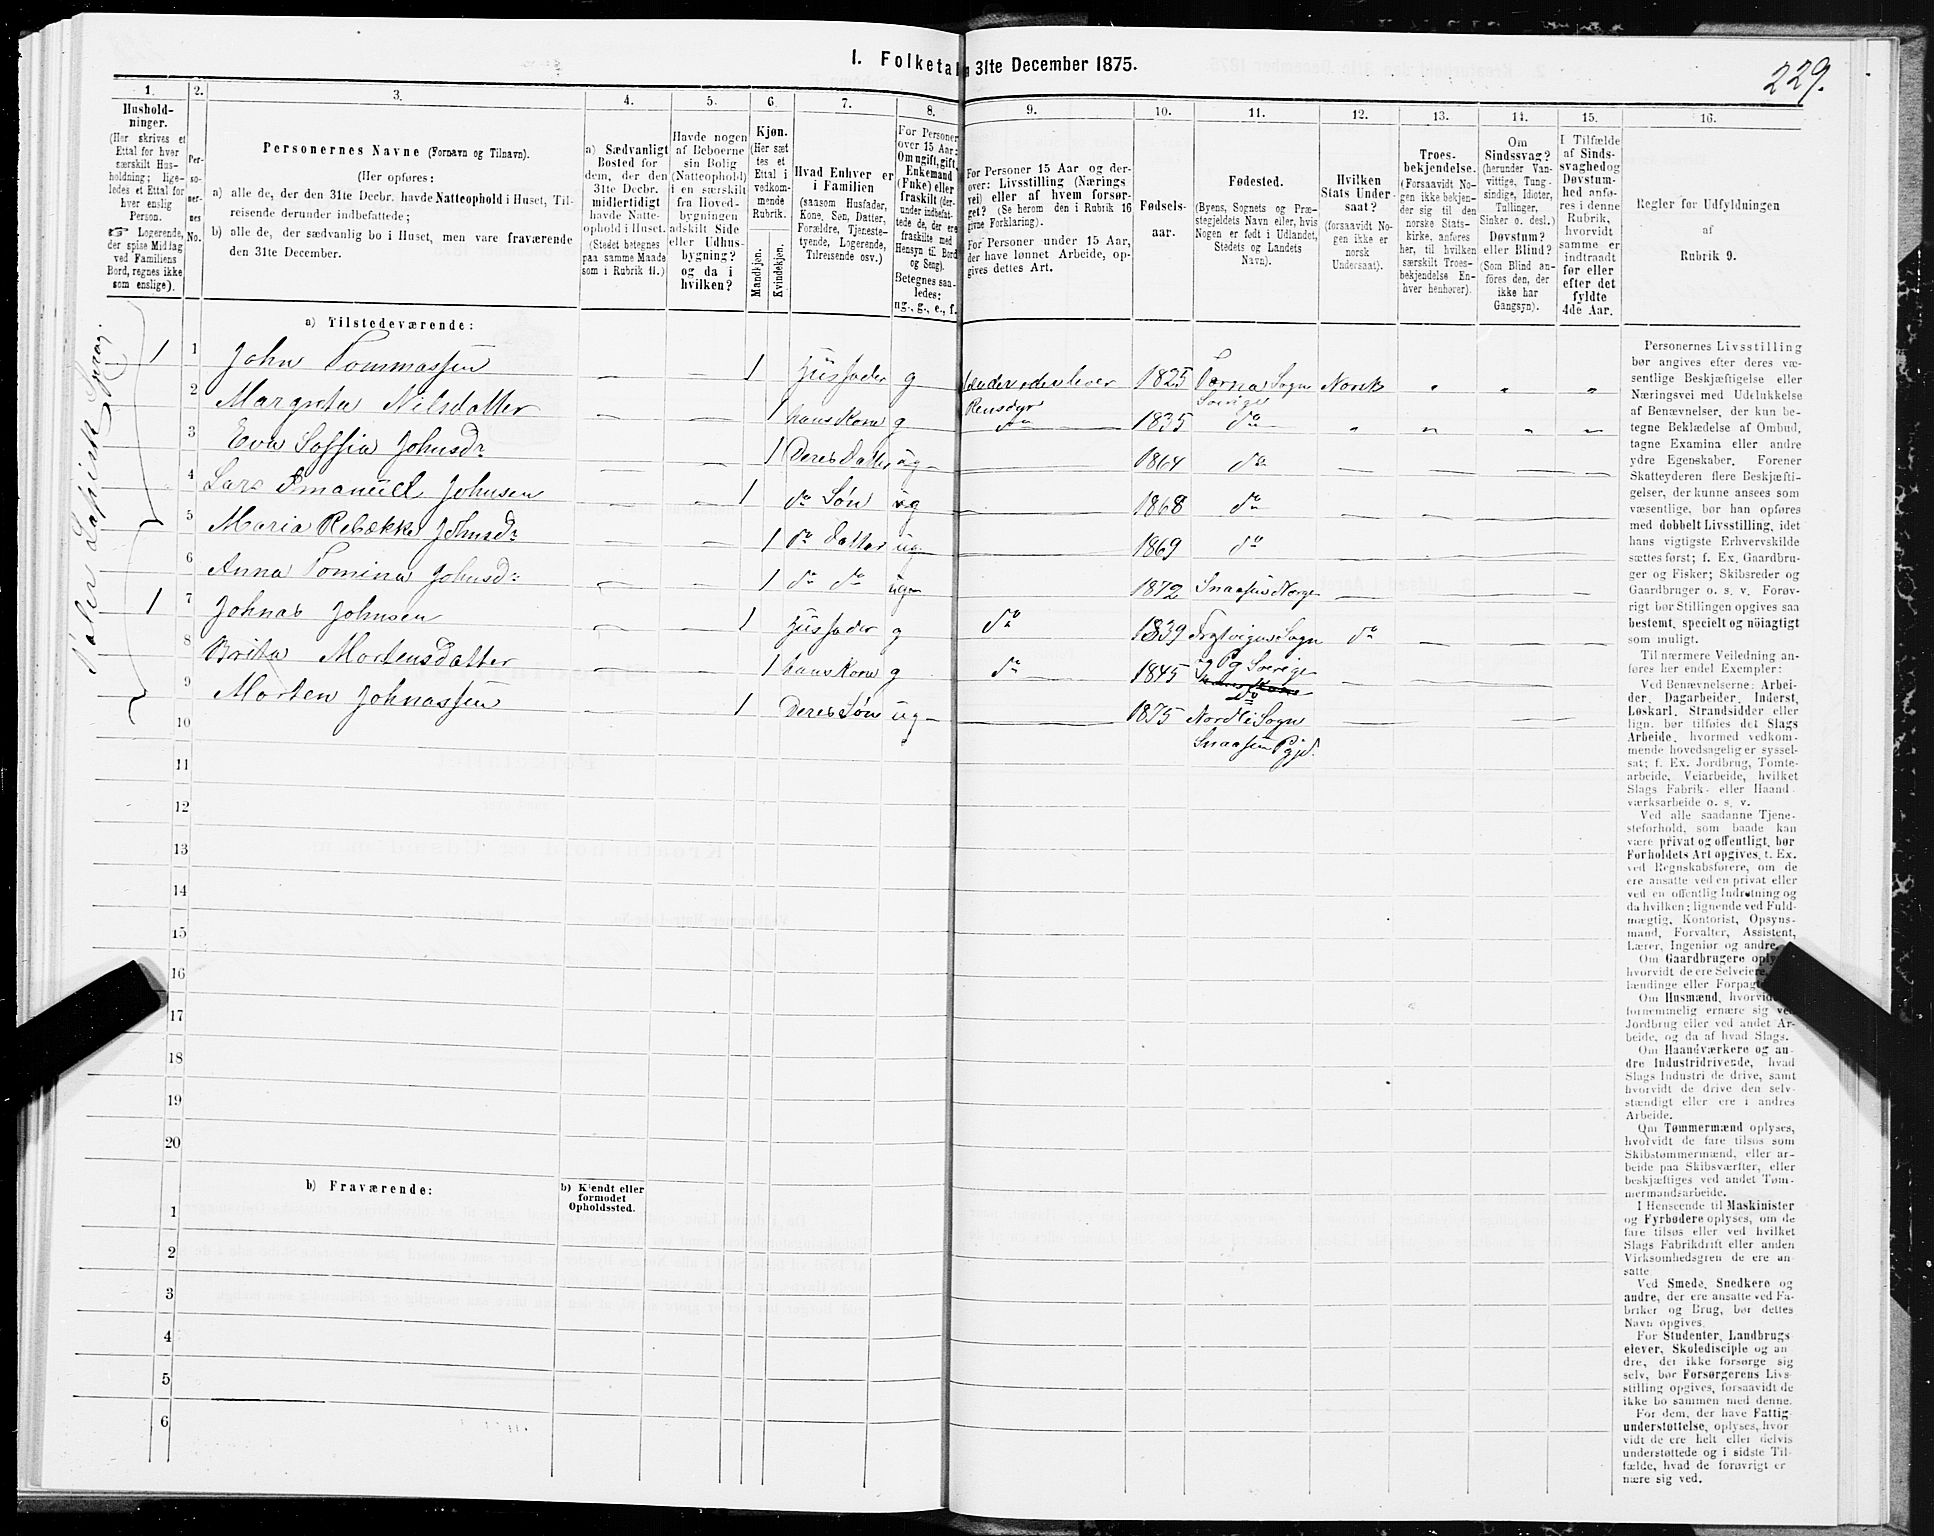 I. Folketa 31te December 1875.
229.
1.
Hushold-
ninger.
(Her skrives et
Ettal for hver
særskilt Hus-
holdning; lige-
ledes et Ettal for
hver enslig
Person.
☞ Logerende,
der spise Middag
ved Familiens
Bord, regnes ikke
som enslige).
2.
Per-
so-
ner-
nes
No.
3.
Personernes Navne (Fornavn og Tilnavn).
(Her opføres:
a) alle de, der den 31te Decbr. havde Natteophold i Huset, Til-
reisende derunder indbefattede;
b) alle de, der sædvanlig bo i Huset, men vare fraværende
den 31te December.
4.
a) Sædvanligt
Bosted for
dem, der den
31te Decbr.
midlertidigt
havde Natte-
ophold i Huset.
(Stedet betegnes
paa samme Maade
som i Rubrik 11.)
5.
Havde nogen
af Beboerne
sin Bolig
(Natteophold)
i en særskilt
fra Hoved-
bygningen
adskilt Side
eller Udhus-
bygning?
og da i
hvilken?
6.
Kjøn.
(Her sæt
tes et
Ettal i
vedkom-
mende
Rubrik.
Mandkjøn.
Kvindekjøn.
7.
Hvad Enhver er
i Familien
(saasom Husfader,
Kone, Søn, Datter,
Forældre, Tjeneste-
tyende, Logerende,
Tilreisende osv.)
8.
For Personer
over 15 Aar:
Om ugift, gift,
Enkemand
(Enke) eller
fraskilt (der-
under indbefat-
tede de, der ere
fraskilte med
Hensyn til Bord
og Seng).
Betegnes saa-
ledes:
ug., g., e., f.
9.
For Personer 15 Aar og der-
over: Livsstilling (Nærings
vei) eller af hvem forsør-
get? (Se herom den i Rubrik 16
givne Forklaring).
For Personer under 15 Aar,
der have lønnet Arbeide, op-
gives dettes Art.
10.
Fødsels-
aar.
11.
Fødested.
(Byens, Sognets og Præ-
stegjeldets Navn eller, hvis
Nogen er født i Udlandet,
Stedets og Landets
Navn).
12.
Hvilken
Stats Under-
saat?
(forsaavidt No-
gen ikke er
norsk
Undersaat).
13.
Troes-
bekjendelse.
(Forsaavidt No-
gen ikke bekjen-
der sig til den
norske Stats-
kirke, anføres
her, til hvilken
særskilt Troes-
bekjendelse En-
hver henhører).
14.
Om
Sindssvag?
(herunder Van-
vittige, Tung-
sindige, Idioter,
Tullinger,
Sinker o. desl.)
Døvstum?
eller Blind?
(Som Blind an-
føres den, der
ikke har
Gangsyn).
15.
I Tilfælde
af Sinds-
svaghed og
Døvstum-
hed anfø-
res i denne
Rubrik,
hvorvidt
samme er
indtraadt
før eller
efter det
fyldte
4de Aar.
16.
Regler for Udfyldningen
af
Rubrik 9.
a) Tilstedeværende:
1 1 John Tommassen — — 1 Husfader g 1825 Tærna Sogn Norsk
Sverige
2 Margreta Nilsdatter — — 1 hans Kone g Rensdyr do 1835 do
3 Eva Soffia Johnsdr — — 1 Deres Datter ug — 1864 do
4 Lars Emanuel Johnsen — — 1 do Søn ug — 1868 do
5 Maria Rebække Johnsdr — — 1 do Datter ug — 1869 do
6 Anna Tomina Johnsdr — — 1 do do ug 1872 Snaasen Norge
1 7 Johnas Johnsen — — 1 Husfader g do 1839 Sogn do
Pg Sverige
8 Brita Mortensdatter 1 hans Kone g do 1845 do
9 Morten Johnassen — — 1 Deres Søn ug — 1875 Nordli Sogn
Snaasen Pgjd.
10
11
12
13
14
15
16
17
18
19
20
b) Fraværende:
b) Kjendt eller
formodet
Opholdssted.
1
2
3
4
5
6
Personernes Livsstilling
bør angives efter deres væ-
sentlige Beskjæftigelse eller
Næringsvei med Udelukkelse
af Benævnelser, der kun be-
tegne Beklædelse af Ombud,
tagne Examina eller andre
ydre Egenskaber. Forener
Skatteyderen flere Beskjæfti-
gelser, der kunne ansees som
væsentlige, bør han opføres
med dobbelt Livsstilling, idet
hans vigtigste Erhvervskilde
sættes først; f. Ex. Gaardbru-
ger og Fisker; Skibsreder og
Gaardbruger o. s. v. Forøv-
rigt bør Stillingen opgives saa
bestemt, specielt og nöiagtigt
som muligt.
Til nærmere Veiledning an-
føres her endel Exempler:
Ved Benævnelserne: Arbei-
der, Dagarbeider, Inderst,
Løskarl, Strandsidder eller
lign. bør tilføies det Slags
Arbeide, hvormed vedkom-
mende hovedsagelig er syssel-
sat; f. Ex. Jordbrug, Tomte-
arbeide, Veiarbeide, hvilket
Slags Fabrik- eller Haand-
værksarbeide o. s. v.
Ved alle saadanne Tjene-
steforhold, som baade kan
være privat og offentligt, bør
Forholdets Art opgives, t. Ex.
ved Regnskabsførere, om de
ere ansatte ved en privat eller
ved en offentlig Indretning og
da hvilken; lignende ved Fuld-
mægtig, Kontorist, Opsyns-
mand, Forvalter, Assistent,
Lærer, Ingeniør og andre.
Om Gaardbrugere oply
hvorvidt de ere Selveiere,
lændinge eller Forpag
Om Husmænd, hvorvid
fornemmelig ernære sig ve
Jordbrug eller ved andet Ar-
beide, og da af hvad Slags.
Om Haandværkere og an-
dre Industridrivende, hvad
Slags Industri de drive, samt
hvorvidt de drive den selv-
stændigt eller ere i andres
Arbeide.
Om Tømmermænd oplyses,
hvorvidt de fare tilsøs som
Skibstømmermænd, eller ar-
beide paa Skibsværfter, eller
beskjæftiges ved andet Tøm-
mermandsarbeide.
I Henseende til Maskinister
og Fyrbødere oplyses, om de
fare tilsøs eller ved hvilket
Slags Fabrikdrift eller anden
Virksomhedsgren de ere an-
satte.
Ved Smede, Snedkere og
andre, der ere ansatte ved Fa-
briker og Brug, bør dettes
Navn opgives.
For Studenter, Landbrugs-
elever, Skoledisciple og an
dre, der ikke forsørge sig
selv, bør Forsørgerens Livs-
stilling opgives, forsaavidt de
ikke bo sammen med denne.
For dem, der have Fattig-
understøttelse, oplyses, hvor
vidt de ere helt eller delvis
understøttede og i sidste Til-
fælde, hvad de forøvrigt er
nære sig ved.